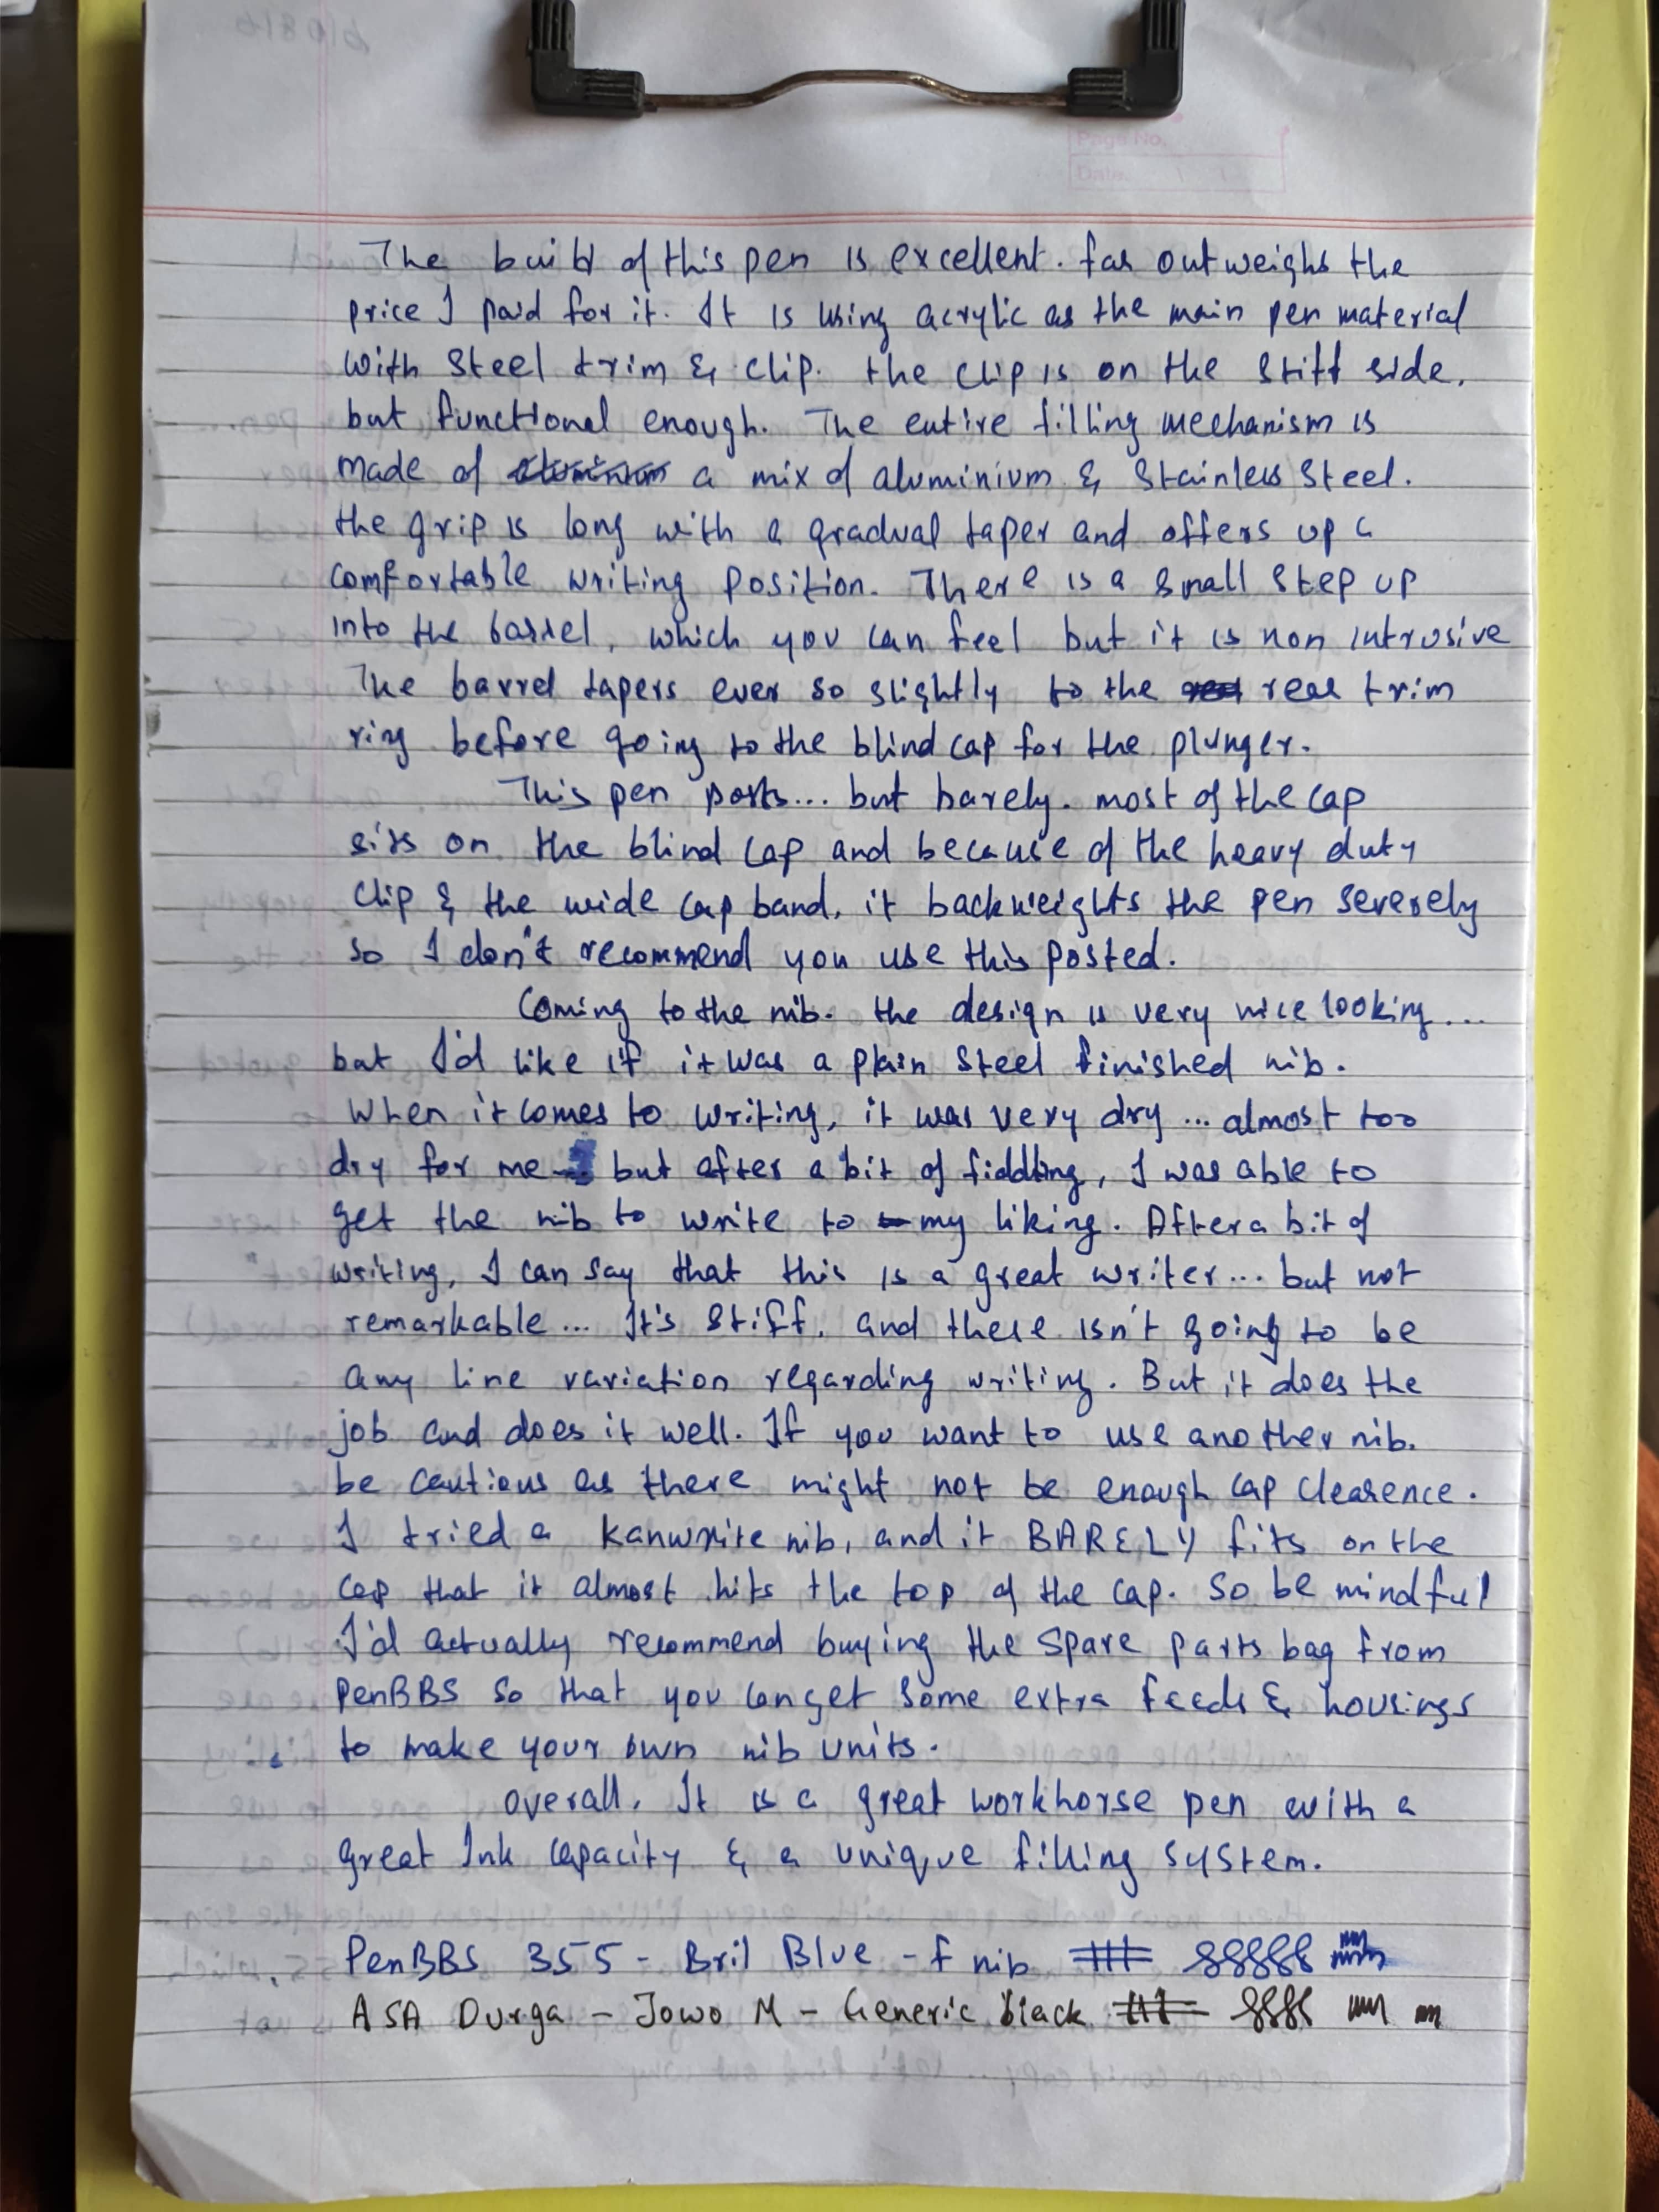 Page No.
Date.
The build of this pen is excellent. far outweighs the
price I paid for it. It is using acrylic as the main pen material
with Steel trim & clip. the clip is on the stiff side,
but functional enough. The entire filling mechanism is
made of aluminium a mix of aluminium & Stainless Steel.
the grip is long with a gradual taper and offers up a
comfortable writing position. There is a small step up
into the barrel, which you can feel but it is non intrusive
The barrel tapers ever so slightly to the rear trim
ring before going to the blind cap for the plunger.
This pen posts... but barely. most of the cap
sits on the blind cap and because of the heavy duty
clip & the wide cap band, it backweights the pen severely
so I don't recommend you use this posted.
Coming to the nib. the design is very nice looking...
but I'd like if it was a plain steel finished nib.
When it comes to writing, it was very dry... almost too
dry for me but after a bit of fiddling, I was able to
get the nib to write to my liking. After a bit of
writing, I can say that this is a great writer... but not
remarkable... It's stiff, and there isn't going to be
any line variation regarding writing. But it does the
job and does it well. If you want to use another nib.
be cautious as there might not be enough cap clearence.
I tried a Kanwrite nib, and it BARELY fits on the
cap that it almost hits the top of the cap. So be mindful
I'd actually recommend buying the spare parts bag from
PenBBS so that you can get some extra feeds & housings
to make your own nib units.
overall, It is a great workhorse pen with a
great Ink capacity & a unique filling system.
PenBBS 355 - Bril Blue - f nib
ASA Durga - Jowo M - Generic black